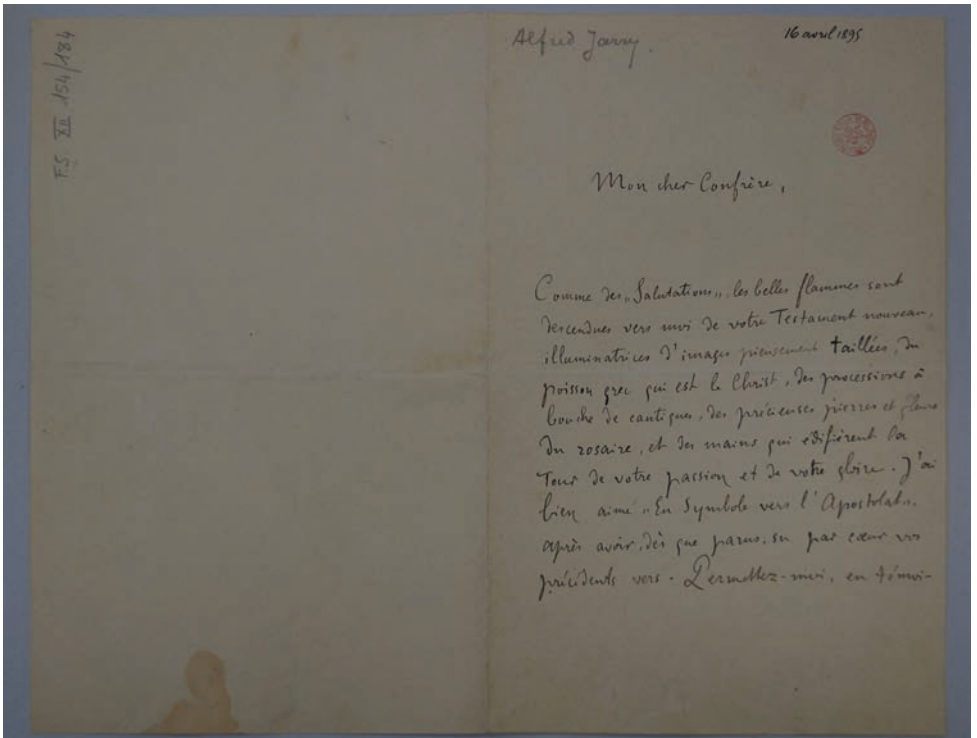 FS XII 154/184
Alfred Jarry.
16 avril 1895
Mon cher Confrère,
Comme des „Salutations„ les belles flammes sont
descendues vers moi de votre Testament nouveau,
illuminatrices d'images pieusement taillées, du
poisson grec qui est le Christ, des processions à
bouche de cantiques, des précieuses pierres et fleurs
du rosaire, et des mains qui édifièrent la
Tour de votre passion et de votre gloire. J'ai
bien aimé „En Symbole vers l'Apostolat„,
après avoir, dès que parus, su par cœur vos
précédents vers. Permettez-moi, en témoi-